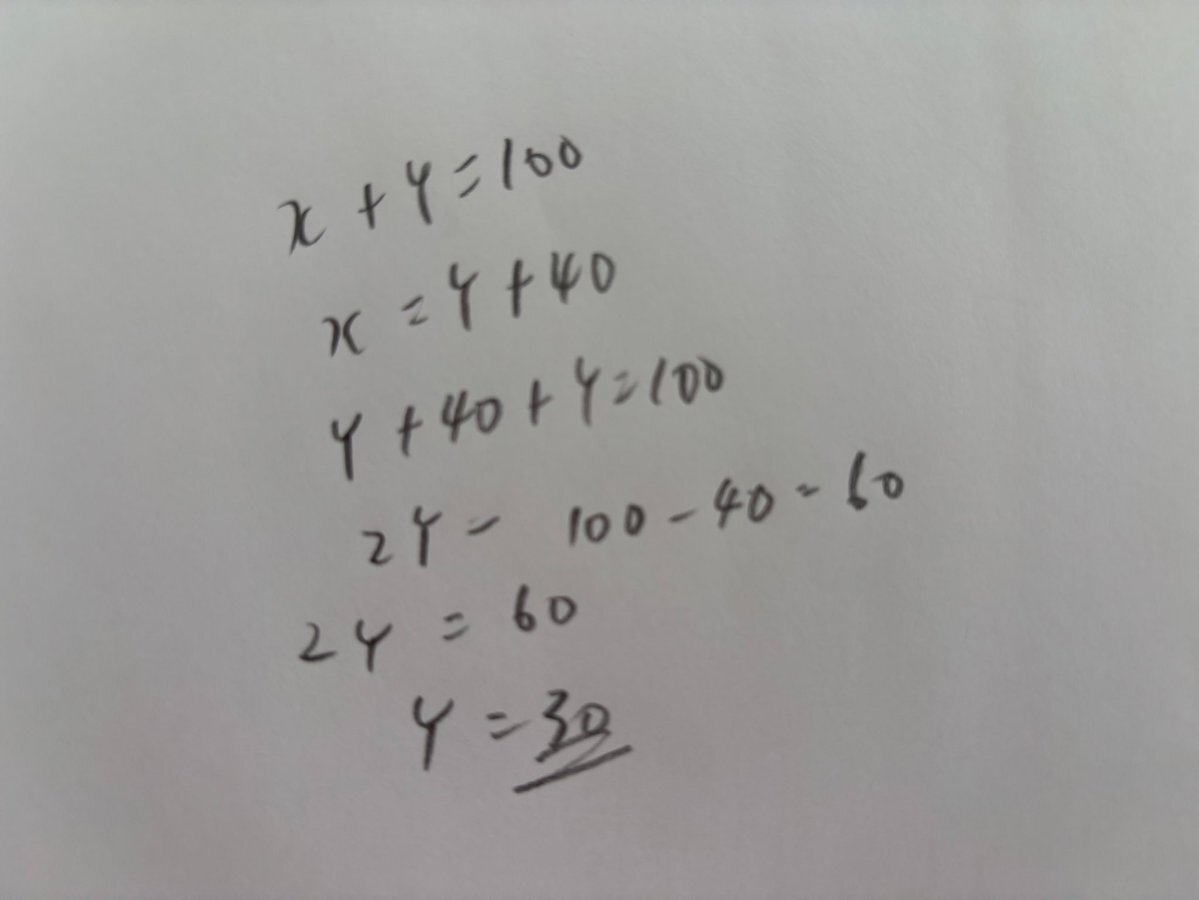 x + y = 100
x = y + 40
y + 40 + y = 100
2y = 100 - 40 = 60
2y = 60
y = 30